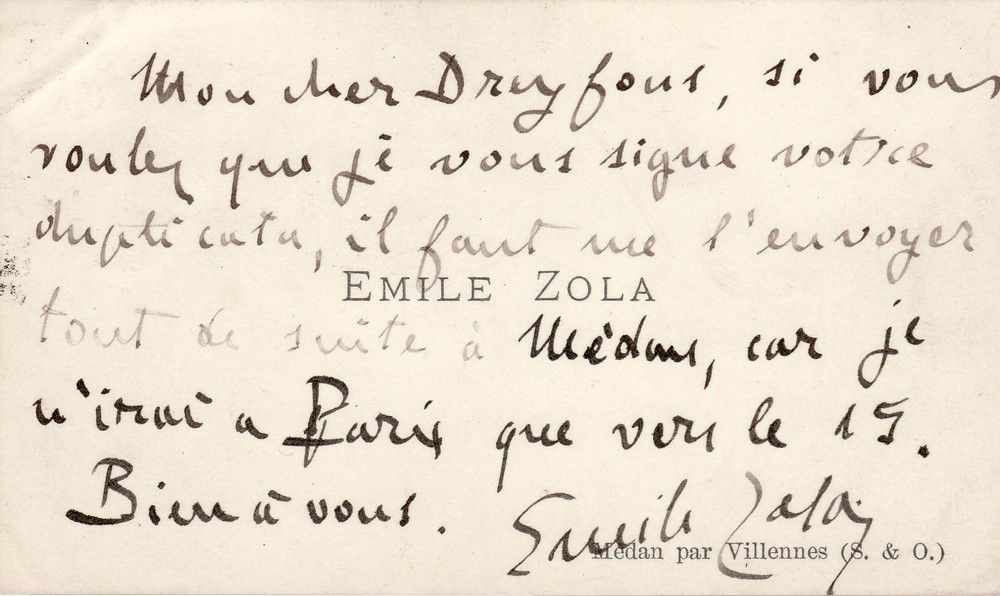 Mon cher Dreyfous, si vous
voulez que je vous signe votre
duplicata, il faut me l'envoyer
EMILE ZOLA
tout de suite à Médan, car je
n'irai à Paris que vers le 15.
Bien à vous.
Emile Zola
Médan par Villennes (S. & O.)